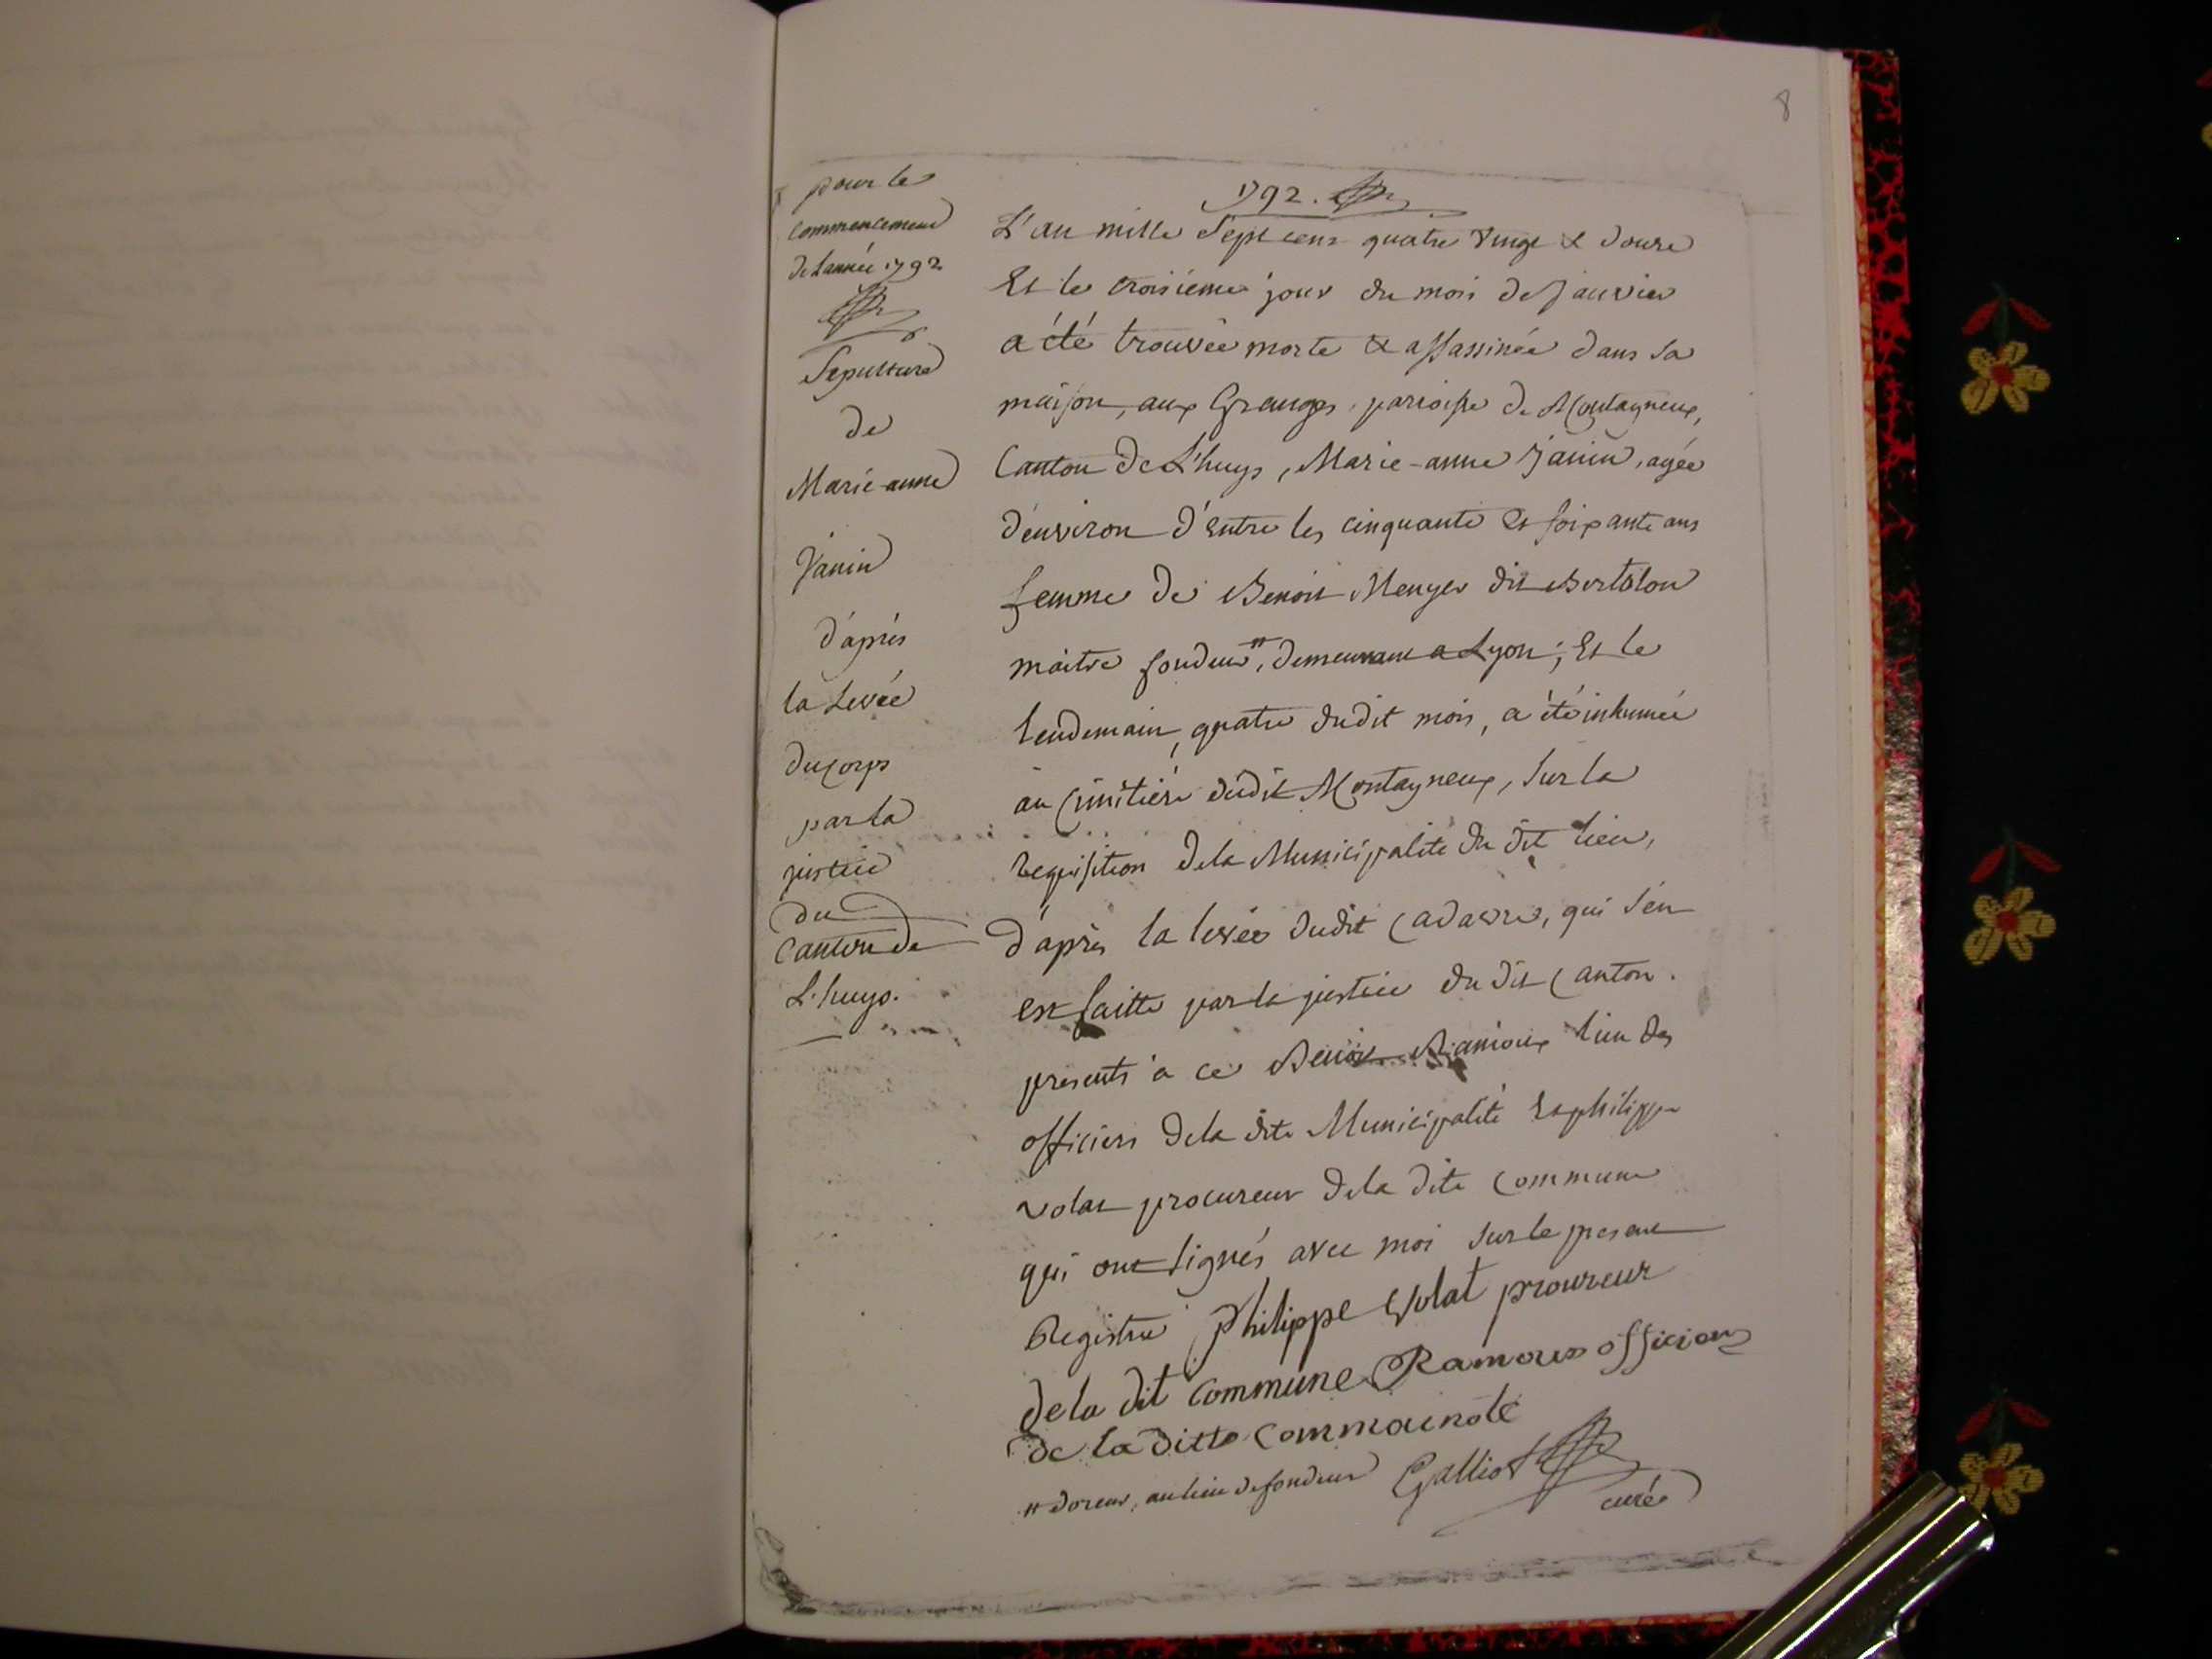 8
pour le
commencement
de l'année 1792
Sepulture
de
Marie-anne
Janin
d'après
la Levée
du corps
par la
justice
du
Canton de
L'huys.
1792.
L'an mille Sept cens quatre vingt & douze
Et le troisiéme jour du mois de Janvier
a été trouvée morte & assassinée dans sa
maison, aux Granges, paroisse de Montagneux,
Canton de L'huys, Marie-anne Janin, agée
d'environ d'entre les cinquante et soixante ans
femme de Benoit Menyer dit Bertolon
maitre fondeur, # demeurant a Lyon; Et le
lendemain, quatre dudit mois, a été inhumée
au Cimitiére dudit Montagneux, Sur la
requisition dela Municipalité du dit lieu,
d'après la levée dudit Cadavre, qui s'en
est faitte par la justice du dit Canton.
presents à ce Benoit Ramoux l'un des
officiers dela dite Municipalité Et philippe
volat procureur dela dite Commune
qui ont signés avec moi Sur le present
Registre Philippe volat proureur
de la dit commune Ramoux officier
de la ditte commainoté
# doreur, au lieu de fondeur Galliot
curé